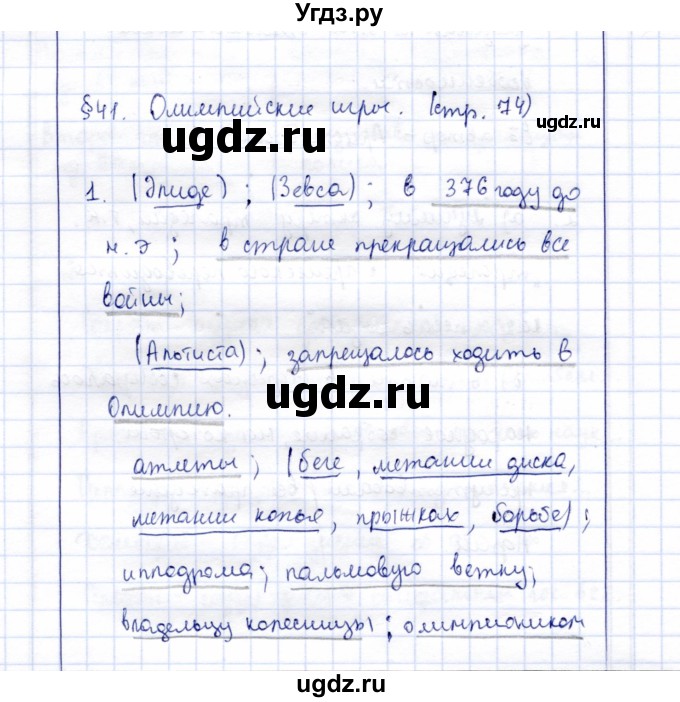 Угдз.ру
§41. Олимпийские игры. (стр. 74)
ugdz.ru
ugdz.ru
1. (Элиде); (Зевса); в 376 году до
н.э; в стране прекращались все
войны;
(Алотиста); запрещалось ходить в
ugdz.ru
Олимпию.
атлеты; (беге, метании диска,
метании копья, прыжках, борьбе);
ugdz.ru
ипподрома; пальмовую ветку;
владельцу колесницы; олимпиоником
ugdz.ru